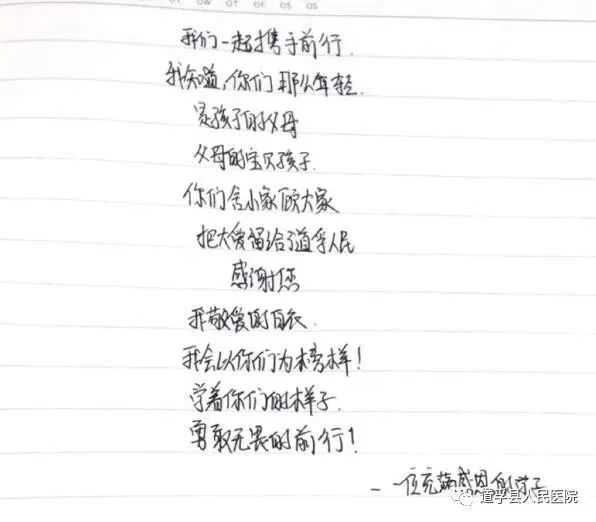 我们一起携手前行.
我知道,你们那么年轻.
是孩子的父母
父母的宝贝孩子.
你们舍小家顾大家
把大爱留给了道孚人民
感谢您
我敬爱的白衣.
我会以你们为榜样!
学着你们的样子.
勇敢无畏的前行!
——一位充满感恩的
道孚县人民医院